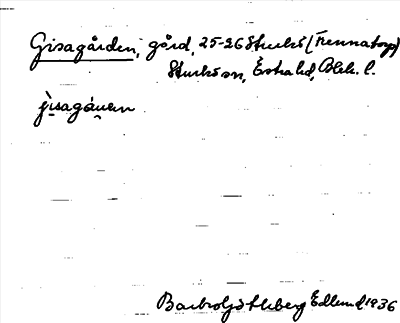 Gisagården, gård, 25-26 Sturkö (Tennatorp)
Sturkö sn, Östra hd, Blek. l.
jìsagá̱ṷen
Barbro Edlund 1936